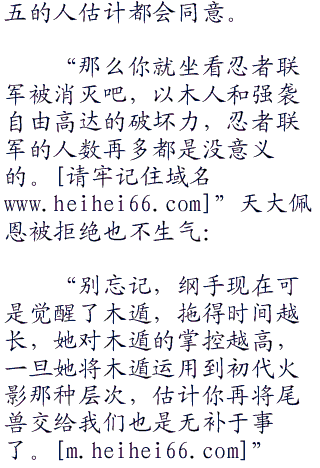 五的人估计都会同意。
“那么你就坐看忍者联
军被消灭吧，以木人和强袭
自由高达的破坏力，忍者联
军的人数再多都是没意义
的。[请牢记住域名
www.heihei66.com]”天大佩
恩被拒绝也不生气：
“别忘记，纲手现在可
是觉醒了木遁，拖得时间越
长，她对木遁的掌控越高，
一旦她将木遁运用到初代火
影那种层次，估计你再将尾
兽交给我们也是无补于事
了。[m.heihei66.com]”